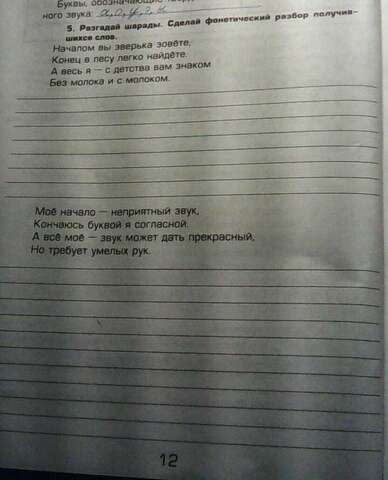 Буквы, обозначающие
ного звука:
5. Разгадай шарады. Сделай фонетический разбор получив-
шихся слов.
Началом вы зверька зовёте,
Конец в лесу легко найдёте.
А весь я — с детства вам знаком
Без молока и с молоком.
Моё начало — неприятный звук,
Кончаюсь буквой я согласной.
А всё моё — звук может дать прекрасный,
Но требует умелых рук.
12